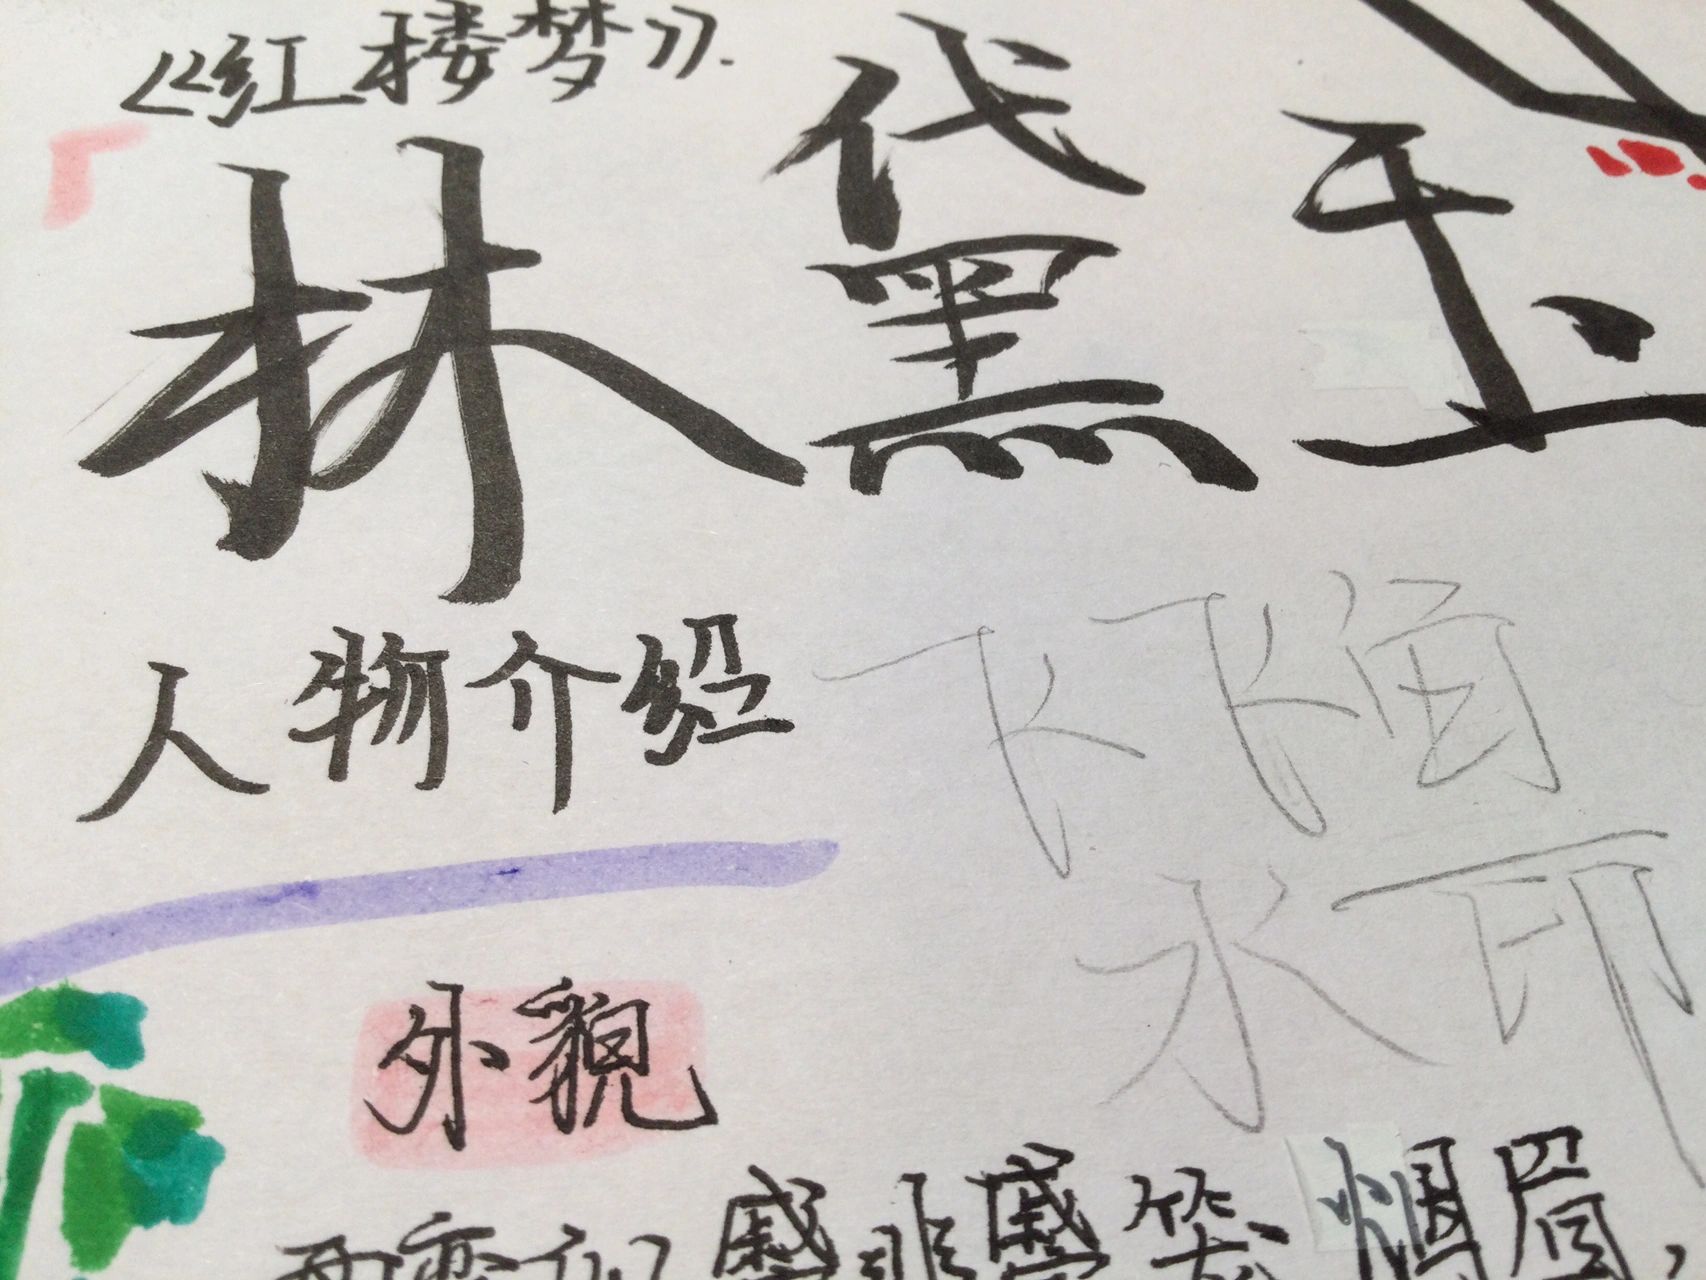 《红楼梦》.
林黛玉
人物介绍
水印
外貌
两弯似蹙非蹙笼烟眉，